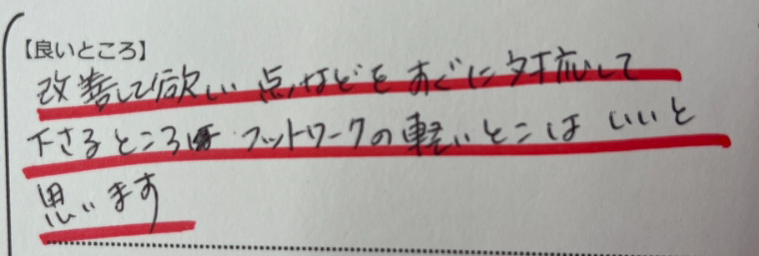 【良いところ】
改善して欲しい点などをすぐに対応して
下さるところは フットワークの軽いとこは いいと
思います